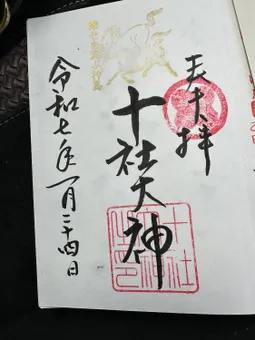 奉拝
十社大神
令和七年一月二十四日